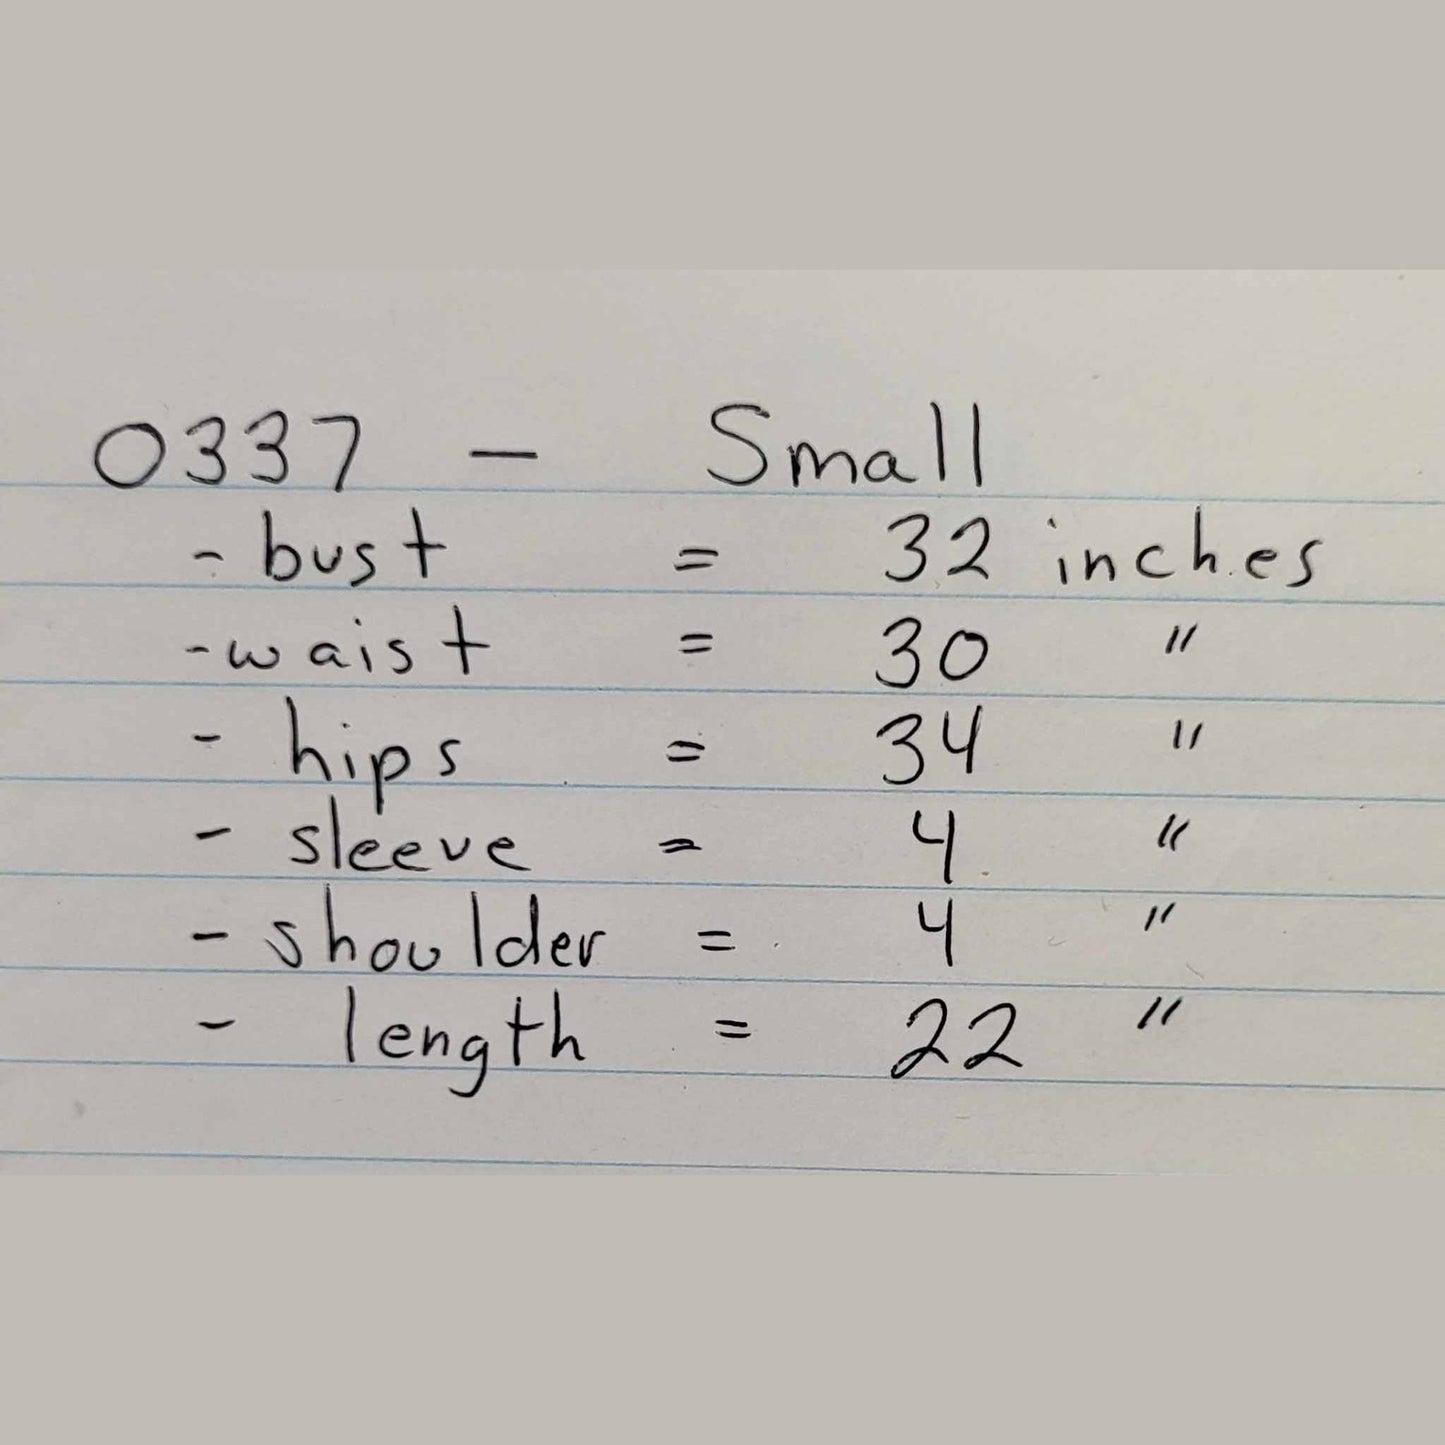 0337 - Small
- bust = 32 inches
- waist = 30 "
- hips = 34 "
- sleeve = 4 "
- shoulder = 4 "
- length = 22 "